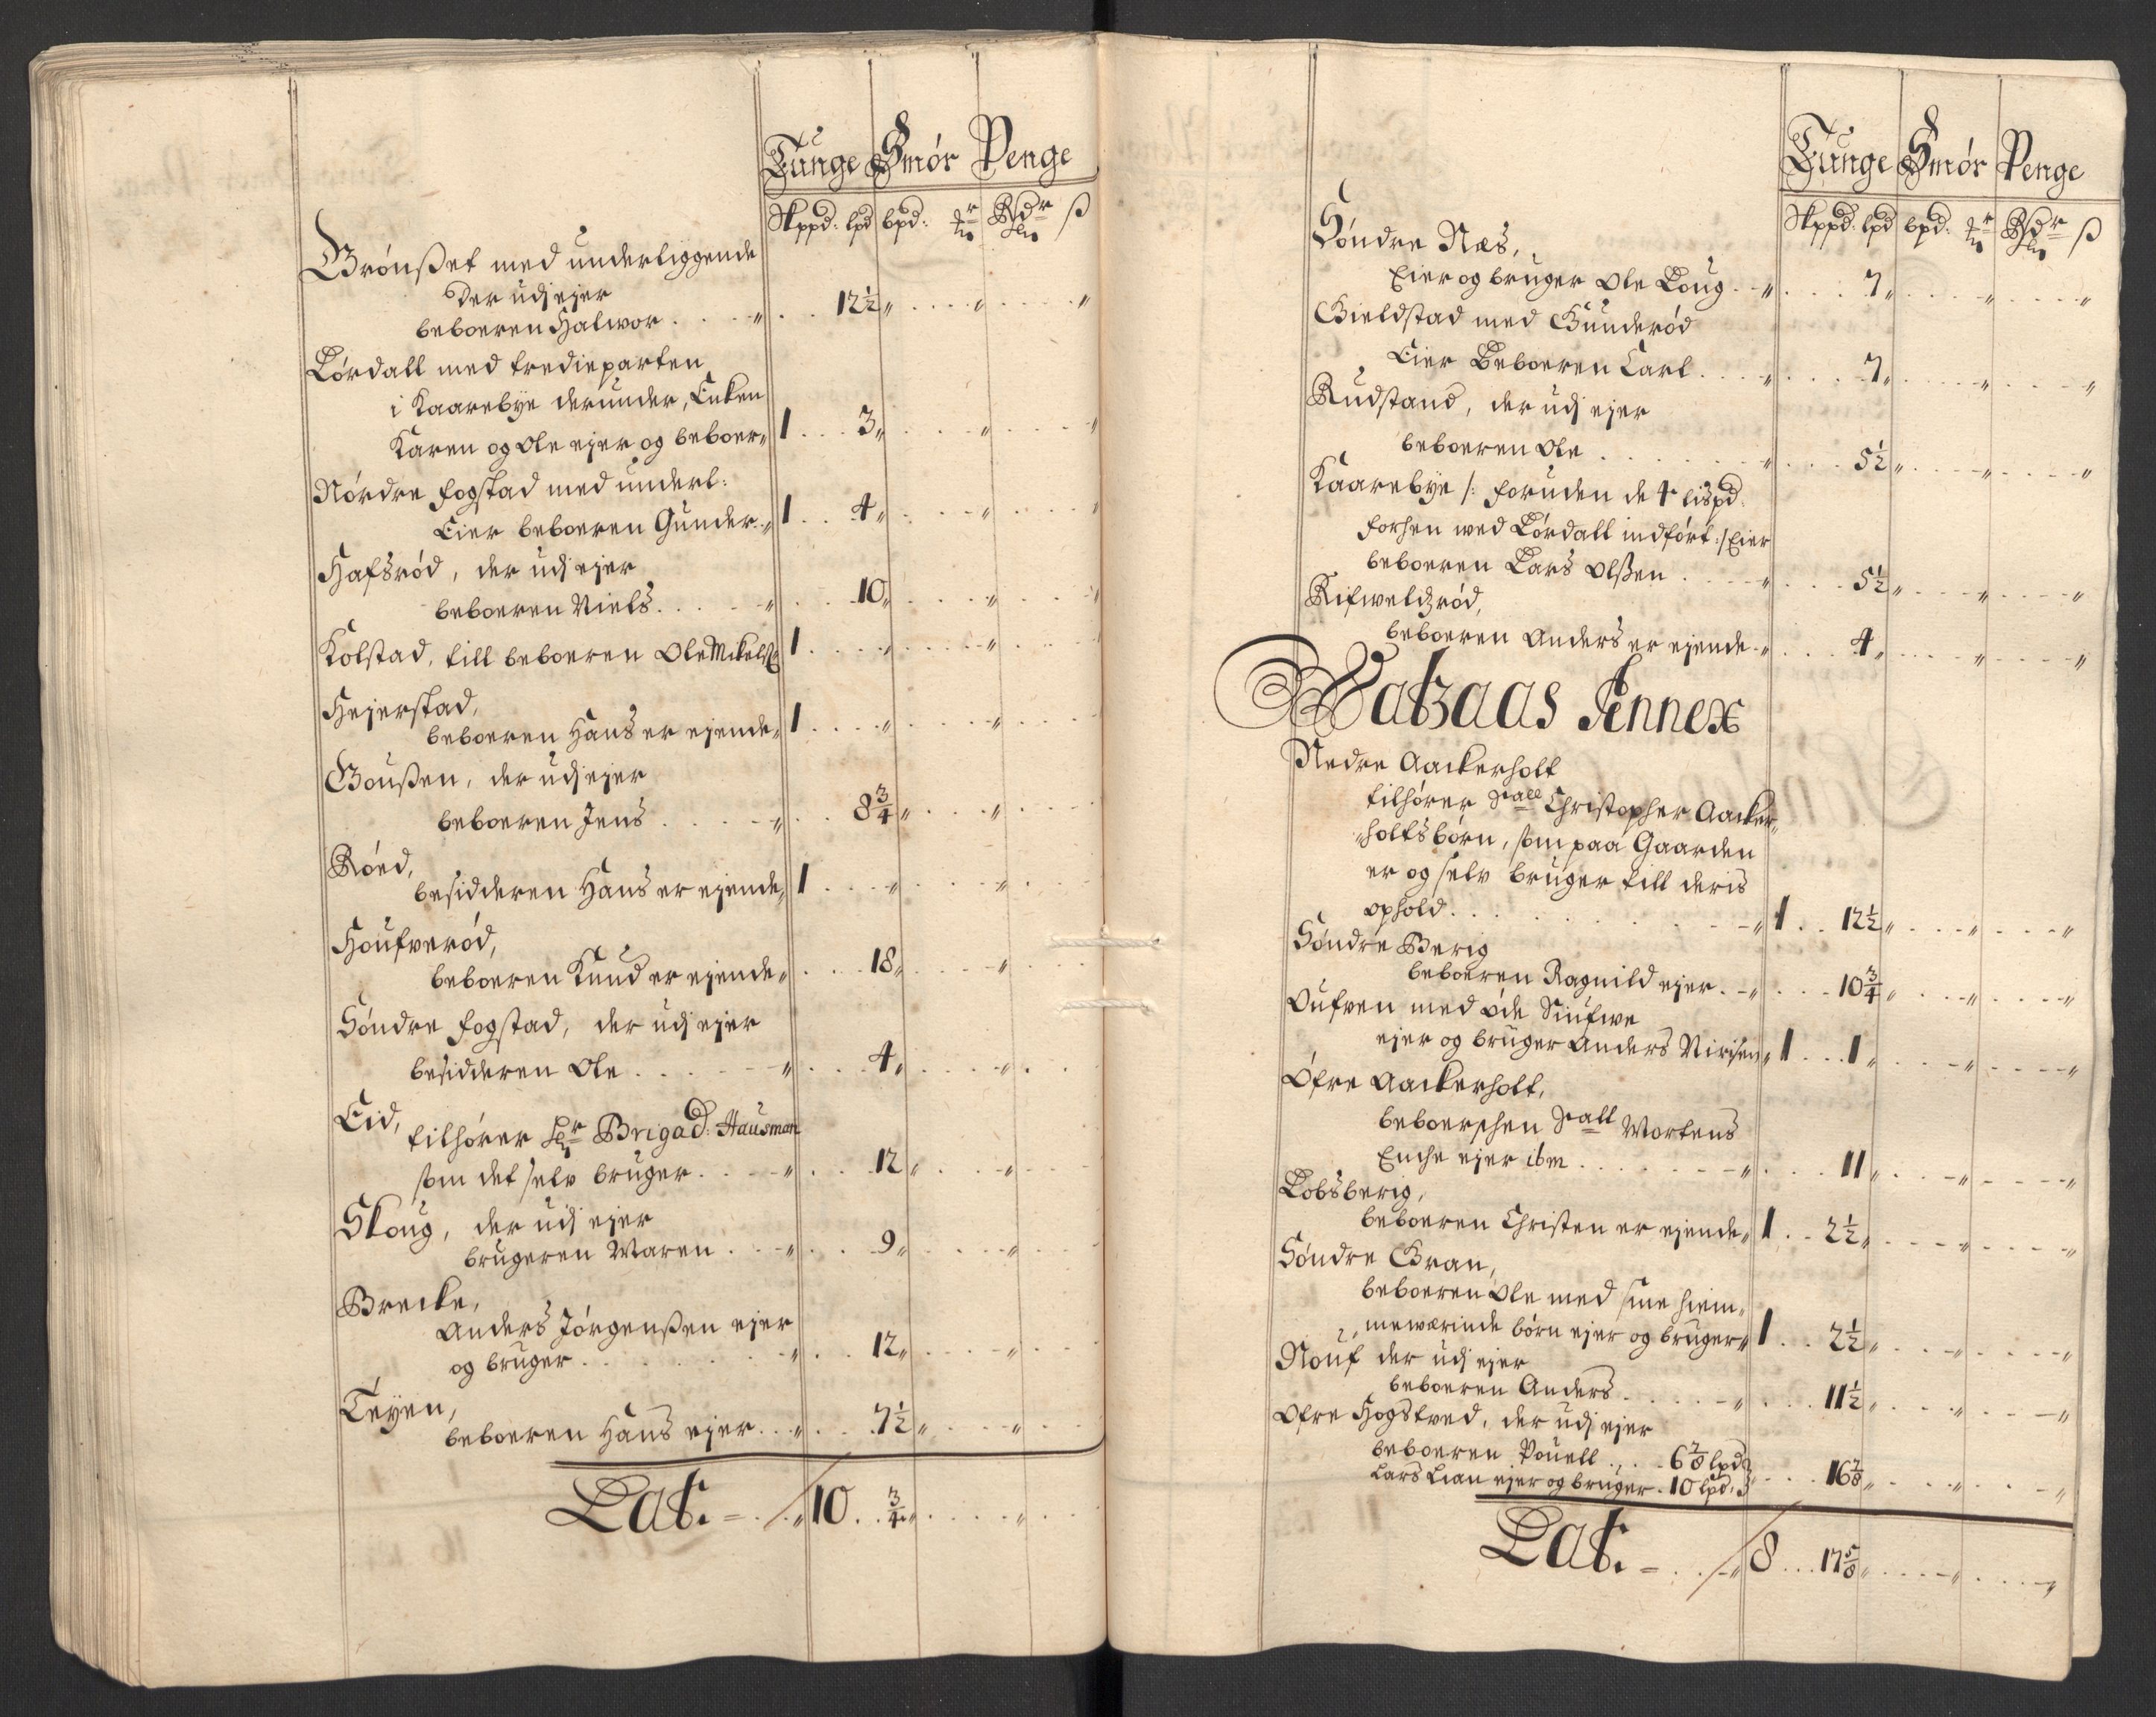 Tunge Smör Penge
Skppd: lpd bpd: Rdr ß
Grönßet med underliggende
der udj ejer
beboeren Halwor . . . „ . . 12½ „ . . . „ . . . „
Lördall med tredieparten
i Kaarebÿe derunder, Enken
Karen og Ole ejer og beboer „ 1 . . . 3 „ . . . „ . . . „
Nördre fogstad med underl:
Eier beboeren Gunder „ 1 . . 4 „ . . . „ . . . „
Hafsröd, der udj ejer
beboeren Niels . . . „ . . . 10 „ . . . „ . . . „
Kolstad, till beboeren Ole Mikels: 1 . . . „ . . . „ . . .
Hejerstad,
beboeren Hans er ejende „ 1 . . . „ . . . „ . . .
Goußen, der udj ejer
beboeren Jens . . . „ . . 8¾ „ . . . „ . . .
Röed,
besidderen Hans er ejende „ 1 . . . „ . . . „ . . .
Houfveröd,
beboeren Knud er ejende „ . . . 18 „ . . . „ . . .
Söndre fogstad, der udj ejer
besidderen Ole . . . „ . . . 4 „ . . . „ . . .
Eid,
tilhörer Hr Brigad: Hausman
som det selv bruger . . . „ . . . 12 „ . . . „ . . .
Skoug, der udj ejer
brugeren Maren . . . „ . . . 9 „ . . . „ . . .
Brecke,
Anders Jörgenßen ejer
og bruger . . . „ . . . 12 „ . . . „ . . .
Teyen,
beboeren Hans ejer . . . „ . . . 7½ „ . . . „ . . .
Lat. = . . „ 10 . . ¾ „ . . . „ . . .
Tunge Smör Penge
Skppd: lpd bpd: Rdr ß
Söndre Næs,
Eier og bruger Ole Loug . . „ . . . 7 „ . . . „ . . . „
Gieldstad med Gunderöd
Eier Beboeren Carl . . . „ . . . 7 „ . . . „ . . . „
Rudstand, der udj ejer
beboeren Ole . . . „ . . . 5½ „ . . . „ . . . „
Kaarebÿe /: foruden de 4 lispd:
forhen wed Lördall indfört :/ Eier
beboeren Lars Olßen . . . „ . . . 5½ „ . . . „ . . . „
Rifweldzröd,
beboeren Anders er ejende „ . . . 4 „ . . . „ . . . „
Watzaas Annex
Nedre Aackerholt
tilhörer Sall Christopher Aacker„
„holts börn, som paa Gaarden
er og selv bruger till deris
ophold . . . „ 1 . . 12½ „ . . . „ . . . „
Söndre Berig
beboeren Ragnild ejer . . „ . . . 10¾ „ . . . „ . . . „
Oufven med öde Siufwe
ejer og bruger Anders Nirisen „ 1 . . . 1 „ . . . „ . . . „
Öfre Aackerholt,
beboerschen Sall Mortens
Enche ejer ibm . . . „ . . . 11 „ . . . „ . . . „
Lobsberig,
beboeren Christen er ejende „ 1 . . 2½ „ . . . „ . . . „
Söndre Gran,
beboeren Ole med sine hiem„
„meværinde börn ejer og bruger „ 1 . . . 2½ „ . . . „ . . . „
Nouf der udj ejer
beboeren Anders . . . „ . . . 11½ „ . . . „ . . . „
Ofre Hogstved, der udj ejer
beboeren Pouell . . . 6⅞ lpd
Lars Lian ejer og bruger . 10 lpd: . . . 16⅞ „ . . . „ . . . „
Lat. = . . „ 8 . . . 17⅝ „ . . . „ . . . „